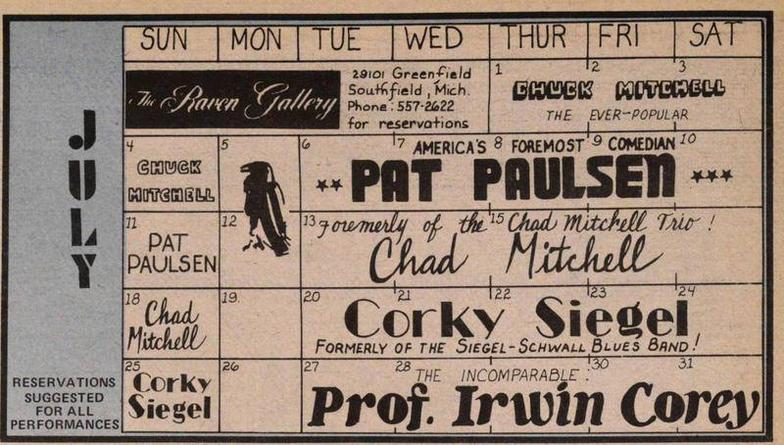 JULY
RESERVATIONS
SUGGESTED
FOR ALL
PERFORMANCES
SUN MON TUE WED THUR FRI SAT
The Raven Gallery
29101 Greenfield
Southfield, Mich.
Phone: 557-2622
for reservations
1 2 3
CHUCK MITCHELL
THE EVER-POPULAR
4 5 6 7 8 9 10
CHUCK
MITCHELL
AMERICA'S FOREMOST COMEDIAN
PAT PAULSEN
11 12 13 15
PAT
PAULSEN
Foremerly of the Chad Mitchell Trio!
Chad Mitchell
18 19. 20 21 22 23 24
Chad
Mitchell
Corky Siegel
FORMERLY OF THE SIEGEL-SCHWALL BLUES BAND!
25 26 27 28 30 31
Corky
Siegel
THE INCOMPARABLE
Prof. Irwin Corey